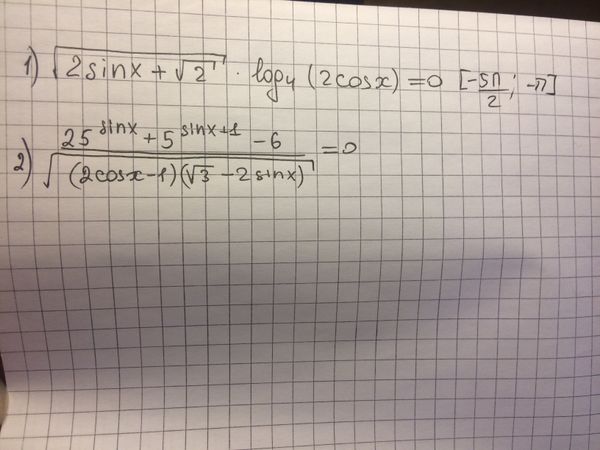 1) √(2sinx + √2) · log₄ (2cosx) = 0 [-5π/2; -π]
2) (25^(sinx) + 5^(sinx+1) - 6)/√((2cosx-1)(√3 - 2sinx)) = 0